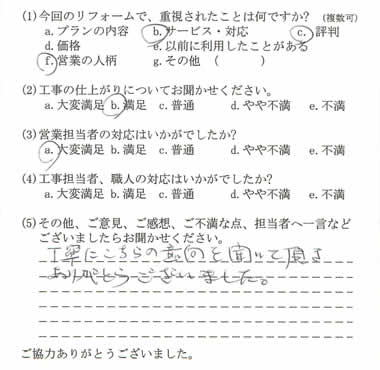 (1)今回のリフォームで、重視されたことは何ですか? (複数可)
a.プランの内容 b.サービス・対応 c.評判
d.価格 e.以前に利用したことがある
f.営業の人柄 g.その他 ( )
(2)工事の仕上がりについてお聞かせください。
a.大変満足 b.満足 c.普通 d.やや不満 e.不満
(3)営業担当者の対応はいかがでしたか?
a.大変満足 b.満足 c.普通 d.やや不満 e.不満
(4)工事担当者、職人の対応はいかがでしたか?
a.大変満足 b.満足 c.普通 d.やや不満 e.不満
(5)その他、ご意見、ご感想、ご不満な点、担当者へ一言など
ございましたらお聞かせください。
丁寧にこちらの意向を聞いて頂き
ありがとうございました。
ご協力ありがとうございました。